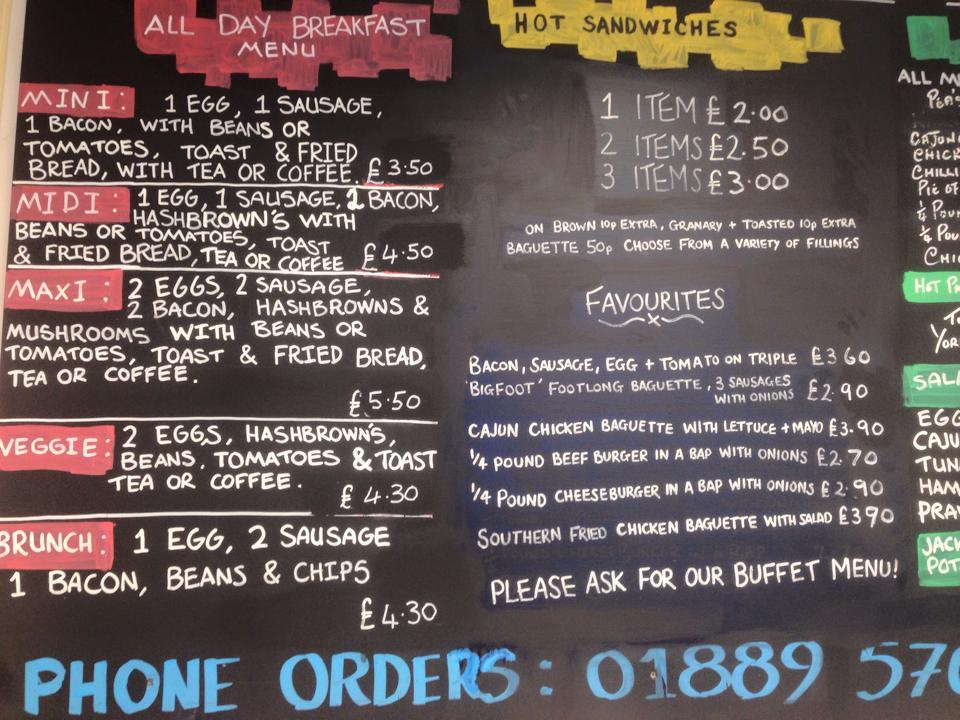 ALL DAY BREAKFAST
MENU
MINI: 1 EGG, 1 SAUSAGE,
1 BACON, WITH BEANS OR
TOMATOES, TOAST & FRIED
BREAD, WITH TEA OR COFFEE. £3.50
MIDI: 1 EGG, 1 SAUSAGE, 2 BACON,
HASHBROWN'S WITH
BEANS OR TOMATOES, TOAST
& FRIED BREAD, TEA OR COFFEE £4.50
MAXI: 2 EGGS, 2 SAUSAGE,
2 BACON, HASHBROWNS &
MUSHROOMS WITH BEANS OR
TOMATOES, TOAST & FRIED BREAD,
TEA OR COFFEE.
£5.50
VEGGIE: 2 EGGS, HASHBROWN'S,
BEANS, TOMATOES & TOAST
TEA OR COFFEE.
£4.30
BRUNCH: 1 EGG, 2 SAUSAGE
1 BACON, BEANS & CHIPS
£4.30
HOT SANDWICHES
1 ITEM £2.00
2 ITEMS £2.50
3 ITEMS £3.00
ON BROWN 10p EXTRA, GRANARY + TOASTED 10p EXTRA
BAGUETTE 50p CHOOSE FROM A VARIETY OF FILLINGS
FAVOURITES
BACON, SAUSAGE, EGG + TOMATO ON TRIPLE £3 60
'BIGFOOT' FOOTLONG BAGUETTE, 3 SAUSAGES
WITH ONIONS £2.90
CAJUN CHICKEN BAGUETTE WITH LETTUCE + MAYO £3.90
1/4 POUND BEEF BURGER IN A BAP WITH ONIONS £2.70
1/4 POUND CHEESEBURGER IN A BAP WITH ONIONS £2.90
SOUTHERN FRIED CHICKEN BAGUETTE WITH SALAD £3 90
PLEASE ASK FOR OUR BUFFET MENU!
ALL M
PEAS
CAJUN
CHICK
CHILLI
PIE OF
1/4 POUN
1/4 POU
CHI
HOT P
YOR
SALA
EGG
CAJU
TUN
HAM
PRAW
JACK
POT
PHONE ORDERS: 01889 570